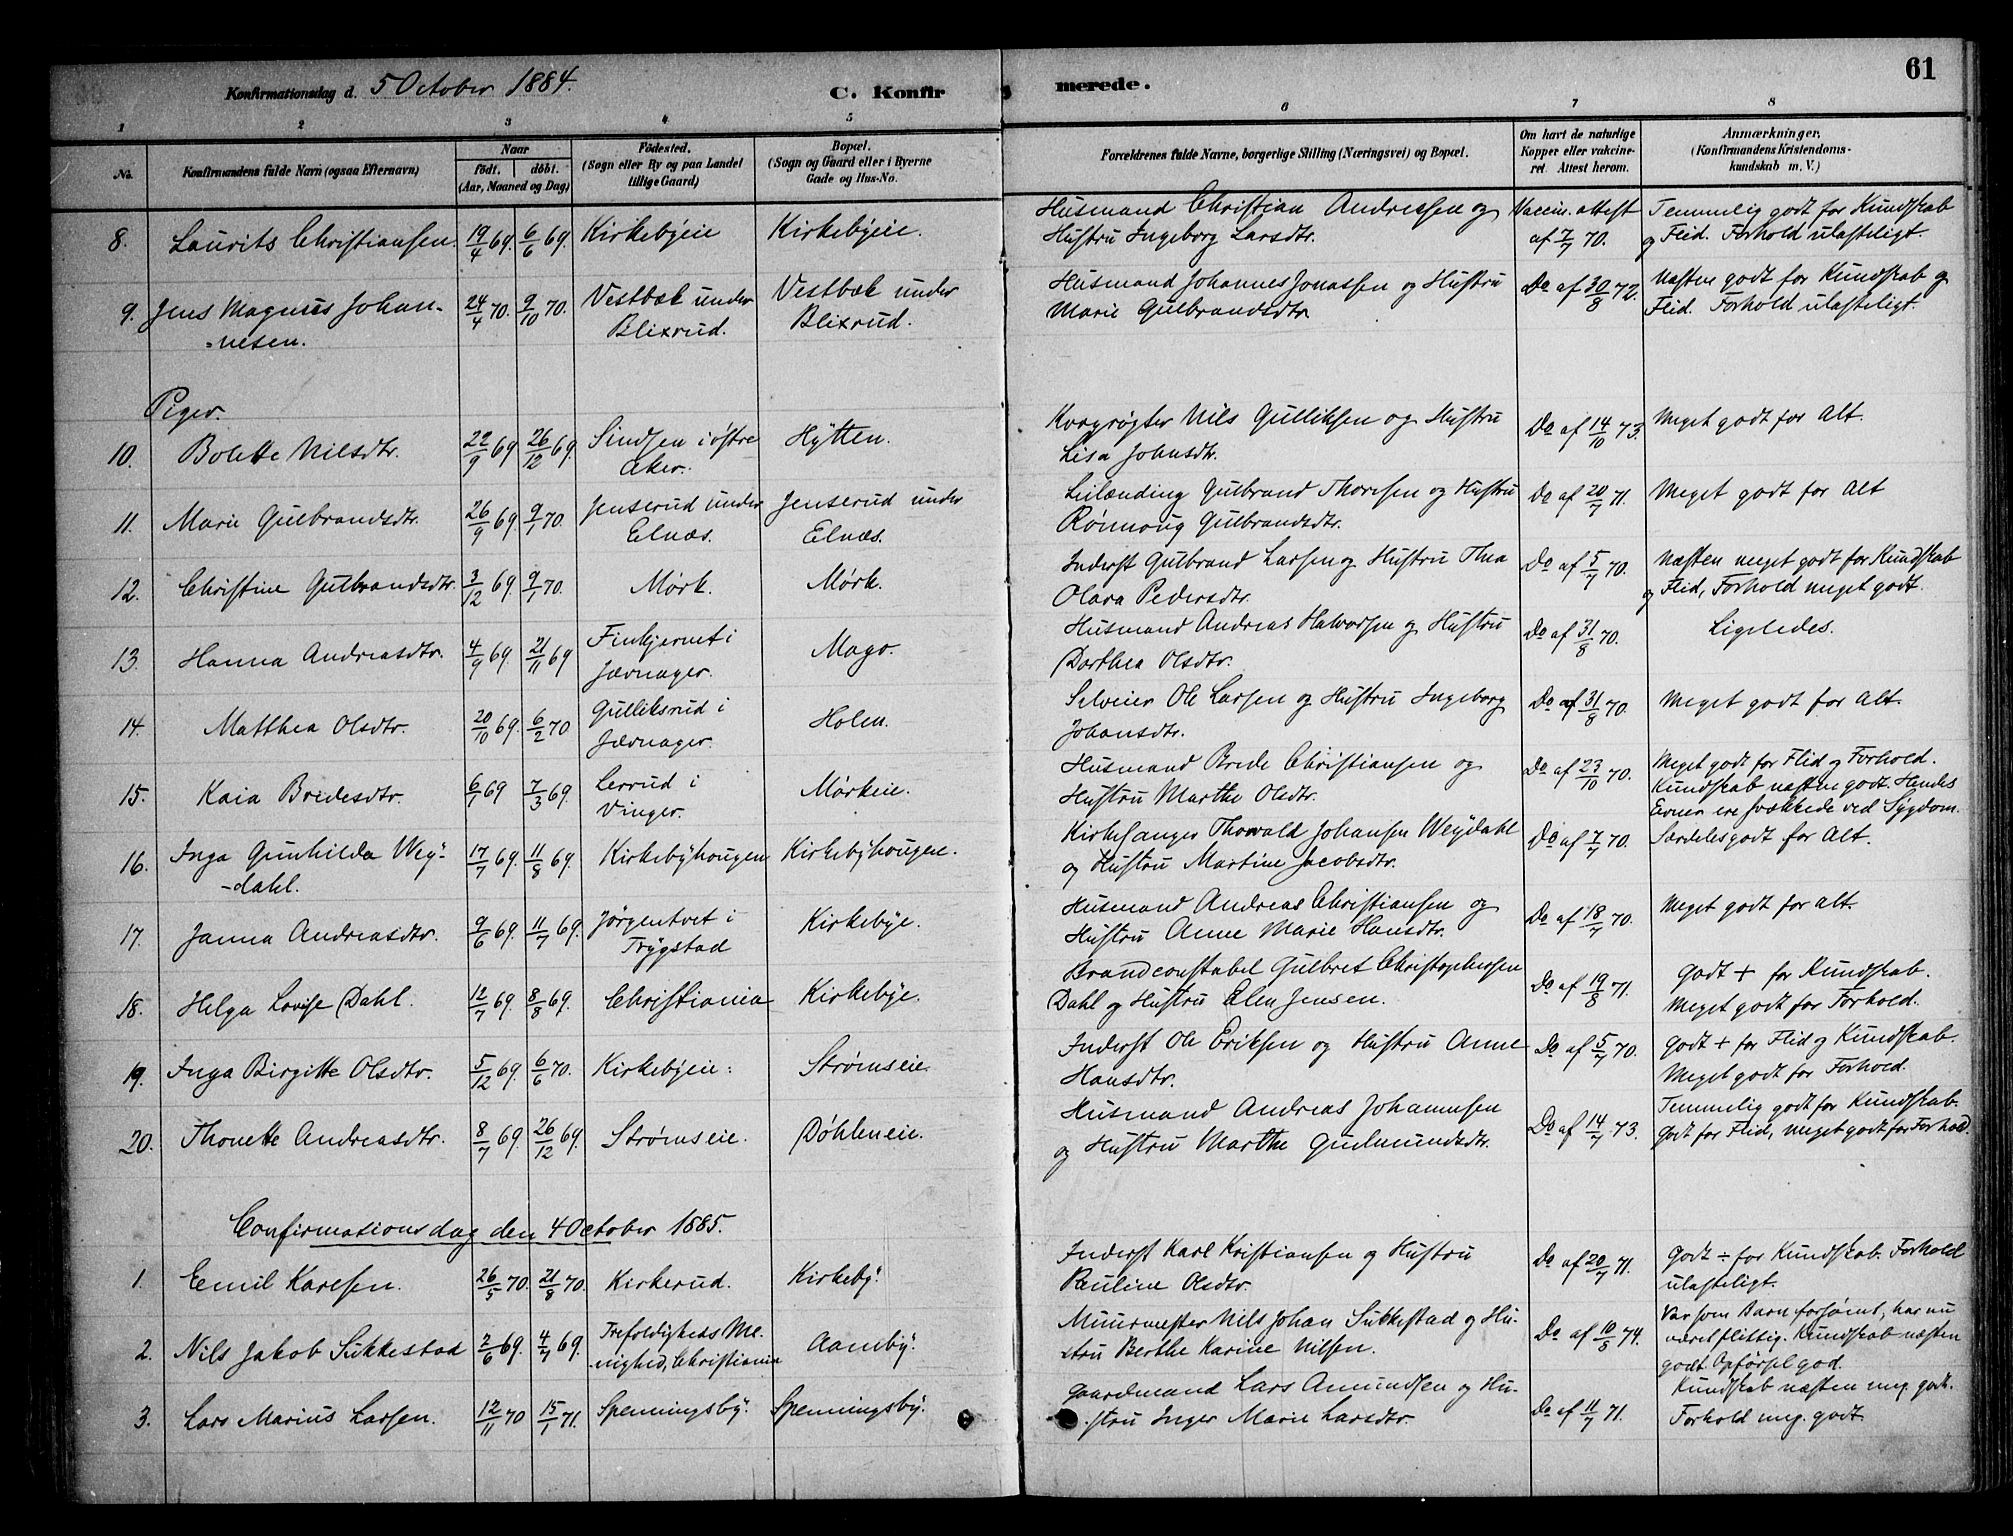 61
Konfirmationsdag d. 5 October 1884. C. Konfirmerede.
1 2 3 4 5 6 7 8
No. Konfirmandens fulde Navn (ogsaa Efternavn) Naar født. døbt. (Aar, Maaned og Dag) Fødested. (Sogn eller By og paa Landet tillige Gaard) Bopæl. (Sogn og Gaard eller i Byerne Gade og Hus-No. Forældrenes fulde Navne, borgerlige Stilling (Næringsvei) og Bopæl. Om havt de naturlige Kopper eller vaccineret. Attest herom. Anmærkninger. (Konfirmandens Kristendomskundskab m. V.)
8. Laurits Christiansen. 19/4 69. 6/6 69. Kirkebyeie Kirkebyeie. Husmand Christian Andresen og Vaccin. attest Temmelig godt for Kundskab
Hustru Ingeborg Larsdtr. af 7/7 70. og Flid. Forhold ulasteligt.
9. Jens Magnus Johan- 24/4 70. 9/10 70. Vestbæk under Vestbæk under Husmand Johannes Jonassen og Hustru Do af 30/8 72. Næsten godt for Kundskab og
-nesen. Blixrud. Blixrud. Marie Gulbrandsdtr. Flid. Forhold ulasteligt.
Piger.
10. Bolette Nilsdtr. 22/9 69 26/12 69. Sindsen i østre Hytten. Nils Gulliksen og Hustru Do af 14/10 73. Meget godt for Alt.
Aker. Lisa Johnsdtr.
11. Marie Gulbrandsdtr. 26/9 69. 9/1 70. Jenserud under Jenserud under Leilænding Gulbrand Thoresen og Hustru Do af 20/7 71. Meget godt for Alt
Elnæs. Elnæs. Rønnoug Gulbrandsdtr.
12. Christine Gulbrandsdtr. 3/12 69. 9/1 70. Mørk. Mørk. Inderst Gulbrand Larsen og Hustru Thea Do af 5/7 70. Næsten meget godt for Kundskab
Olava Pedersdtr. og Flid, Forhold meget godt.
13. Hanna Andreasdtr. 4/9 69. 21/11 69 i Mago. Husmand Andreas Halvorsen og Hustru Do af 31/8 70. Ligeledes.
Jævnager. Dorthea Olsdtr.
14. Matthea Olsdtr. 20/10 69. 6/2 70 Gulliksrud i Holm. Selveier Ole Larsen og Hustru Ingeborg Do af 31/8 70. Meget godt for Alt.
Jævnager. Johansdtr.
15. Kaia Bredesdtr. 6/1 69 7/3 69. Lerrud i Mørkeie. Husmand Brede Christiansen og Do af 23/10 70. Meget godt for Flid og Forhold.
Vinger. Hustru Marthe Olsdtr. Kundskab næsten godt. Hendes
Evner ere svækkede ved Sygdom.
16. Inga Gunhilda Wey- 17/7 69. 11/8 69. Kirkebyhougen Kirkebyhougen. Kirkesanger Thorvald Johansen Weydahl Do af 7/7 70. Særdeles godt for Alt.
-dahl. og Hustru Martine Jacobsdtr.
17. Janna Andreasdtr. 9/6 69. 11/7 69. Jørgentvet i Kirkebye. Husmand Andreas Christiansen og Do af 18/7 70. Meget godt for alt.
Trygstad Hustru Anne Marie Hansdtr.
18. Helga Lovise Dahl. 12/7 69. 8/8 69. Christiania Kirkebye. Brandconstabel Gulbret Christophersen Do af 19/8 71. Godt + for Kundskab.
Dahl og Hustru Elen Jensen. Meget godt for Forhold.
19. Inga Birgitte Olsdtr. 5/12 69. 6/6 70. Kirkebyeie: Strømseie. Inderst Ole Eriksen og Hustru Anne Do af 5/7 70. Godt + for Flid og Kundskab.
Hansdtr. Meget godt for Forhold.
20. Thonette Andreasdtr. 8/7 69. 26/12 69. Strømseie. Døhleneie. Husmand Andreas Johannesen Do af 14/7 73. Temmelig godt for Kundskab.
og Hustru Marthe Gudmundsdtr. Godt for Flid, meget godt for Forhold.
Confirmationsdag den 4 October 1885.
1. Emil Karlsen. 26/5 70. 21/8 70. Kirkerud. Kirkeby. Inderst Karl Kristiansen og Hustru Do af 20/7 71. Godt ÷ for Kundskab. Forhold
Pauline Olsdtr. ulasteligt.
2. Nils Jakob Sukkestad 2/6 69. 4/7 69. Trefoldigheds Me- Aamby. Muurmester Nils Johan Sukkestad og Hu- Do af 10/8 74. Var som Barn forsømt, har nu
-nighed, Christiania -stru Berthe Karine Nilsen. været flittig. Kundskab næsten
godt. Opførsel god.
3. Lars Marius Larsen. 12/11 70 15/1 71. Spenningsby. Spenningsby. Gaardmand Lars Amundsen og Hu- Do af 11/7 71. Kundskab næsten meg. godt.
-stru Inger Marie Larsdtr. Forhold meg. godt